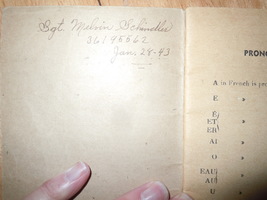 Sgt. Melvin Schindler
36195562
Jan. 28-43
PRONO
A in French is pro
E »
É
ET »
ER
AI »
O »
EAU
AU »
U »